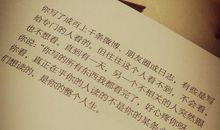 你写了成百上千条微博、朋友圈或日志，有些是写
给专门的人看的，但往往这个人看不到，不会看，
也不想看。直到有一天，另一个不相关的人突然跟
你说：“你写的所有东西我都看完了，好心疼你呀。”
你看，真正在乎你的人读的不是你的某条
们想读的，是你的整个人生。